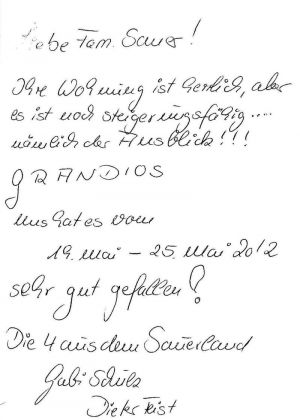 Liebe Fam. Sauer!
Ihre Wohnung ist herrlich, aber
es ist noch steigerungsfähig....
nämlich der Ausblick!!!
GRANDIOS
Uns hat es vom
19. Mai - 25. Mai 2012
sehr gut gefallen!
Die 4 aus dem Sauerland
Gabi Schulz
Dieter Feist